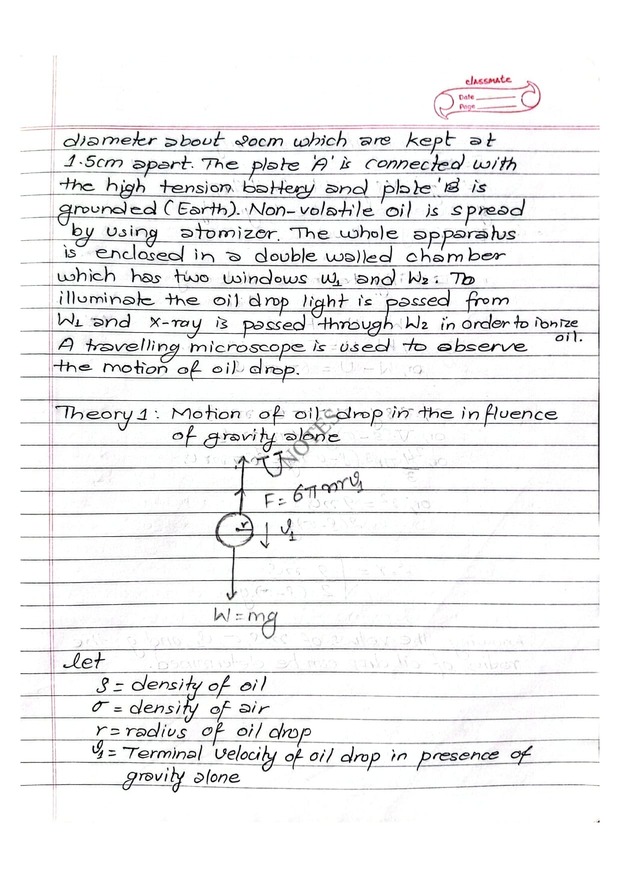 classmate
Date
Page
diameter about 20cm which are kept at
1.5cm apart. The plate 'A' is connected with
the high tension battery and plate 'B' is
grounded (Earth). Non-volatile oil is spread
by using atomizer. The whole apparatus
is enclosed in a double walled chamber
which has two windows W1 and W2. To
illuminate the oil drop light is passed from
W1 and x-ray is passed through W2 in order to ionize
oil.
A travelling microscope is used to observe
the motion of oil drop.
Theory 1: Motion of oil drop in the influence
of gravity alone
NOTES
U
F = 6πηrv1
r
v1
W = mg
let
ρ = density of oil
σ = density of air
r = radius of oil drop
v1 = Terminal velocity of oil drop in presence of
gravity alone